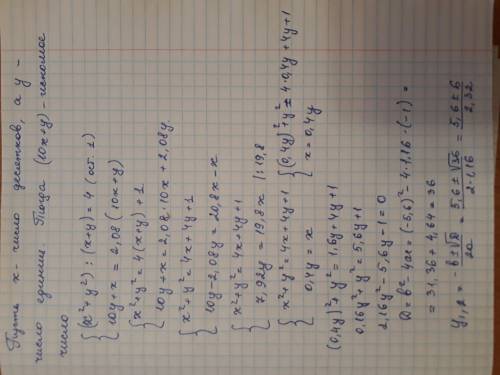 Пусть x - число десятков, а y -
число единиц. Тогда (10x+y) - искомое
число
{ (x²+y²) : (x+y) = 4 (ост. 1)
10y+x = 2,08 (10x+y)
{ x²+y² = 4(x+y)+1
10y+x = 2,08·10x + 2,08y.
{ x²+y² = 4x+4y+1
10y-2,08y = 20,8x-x
{ x²+y² = 4x+4y+1
7,92y = 19,8x |:19,8
{ x²+y² = 4x+4y+1 { (0,4y)²+y² = 4·0,4y+4y+1
0,4y = x x = 0,4y
(0,4y)²+y² = 1,6y+4y+1
0,16y²+y² = 5,6y+1
2,16y²-5,6y-1=0
D = b²-4ac = (-5,6)²-4·1,16·(-1) =
= 31,36+4,64 = 36
y₁,₂ = b±√D / 2a = 5,6±√36 / 2·1,16 = 5,6±6 / 2,32